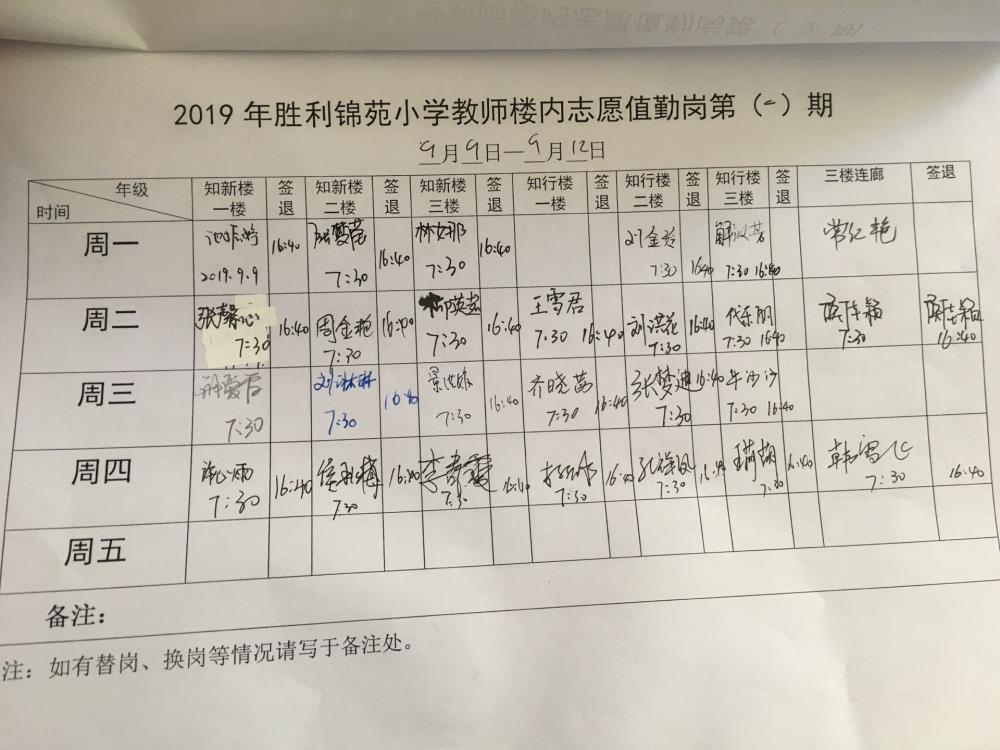 2019年胜利锦苑小学教师楼内志愿值勤岗第（一）期
9月9日—9月12日
年级 知新楼一楼 签退 知新楼二楼 签退 知新楼三楼 签退 知行楼一楼 签退 知行楼二楼 签退 知行楼三楼 签退 三楼连廊 签退
时间
周一 16:40 16:40 林女那 16:40 刘金玲 常红艳
2019.9.9 7:30 7:30 7:30 16:40 7:30 16:40
周二 张馨心 16:40 周金艳 16:40 16:40 王雪君 16:40 刘洪花 16:40 代乐朋
7:30 7:30 7:30 7:30 7:30 7:30 16:40 7:30 16:40
周三 刘淋淋 16:40 16:40 齐晓茜 16:40 张梦迪 16:40 牛沙沙
7:30 7:30 7:30 7:30 7:30 7:30 16:40
周四 16:40 16:40 李春霞 16:40 16:40 16:40 16:40 韩雪飞 16:40
7:30 7:30 7:30 7:30 7:30 7:30 7:30
周五
备注：
注：如有替岗、换岗等情况请写于备注处。